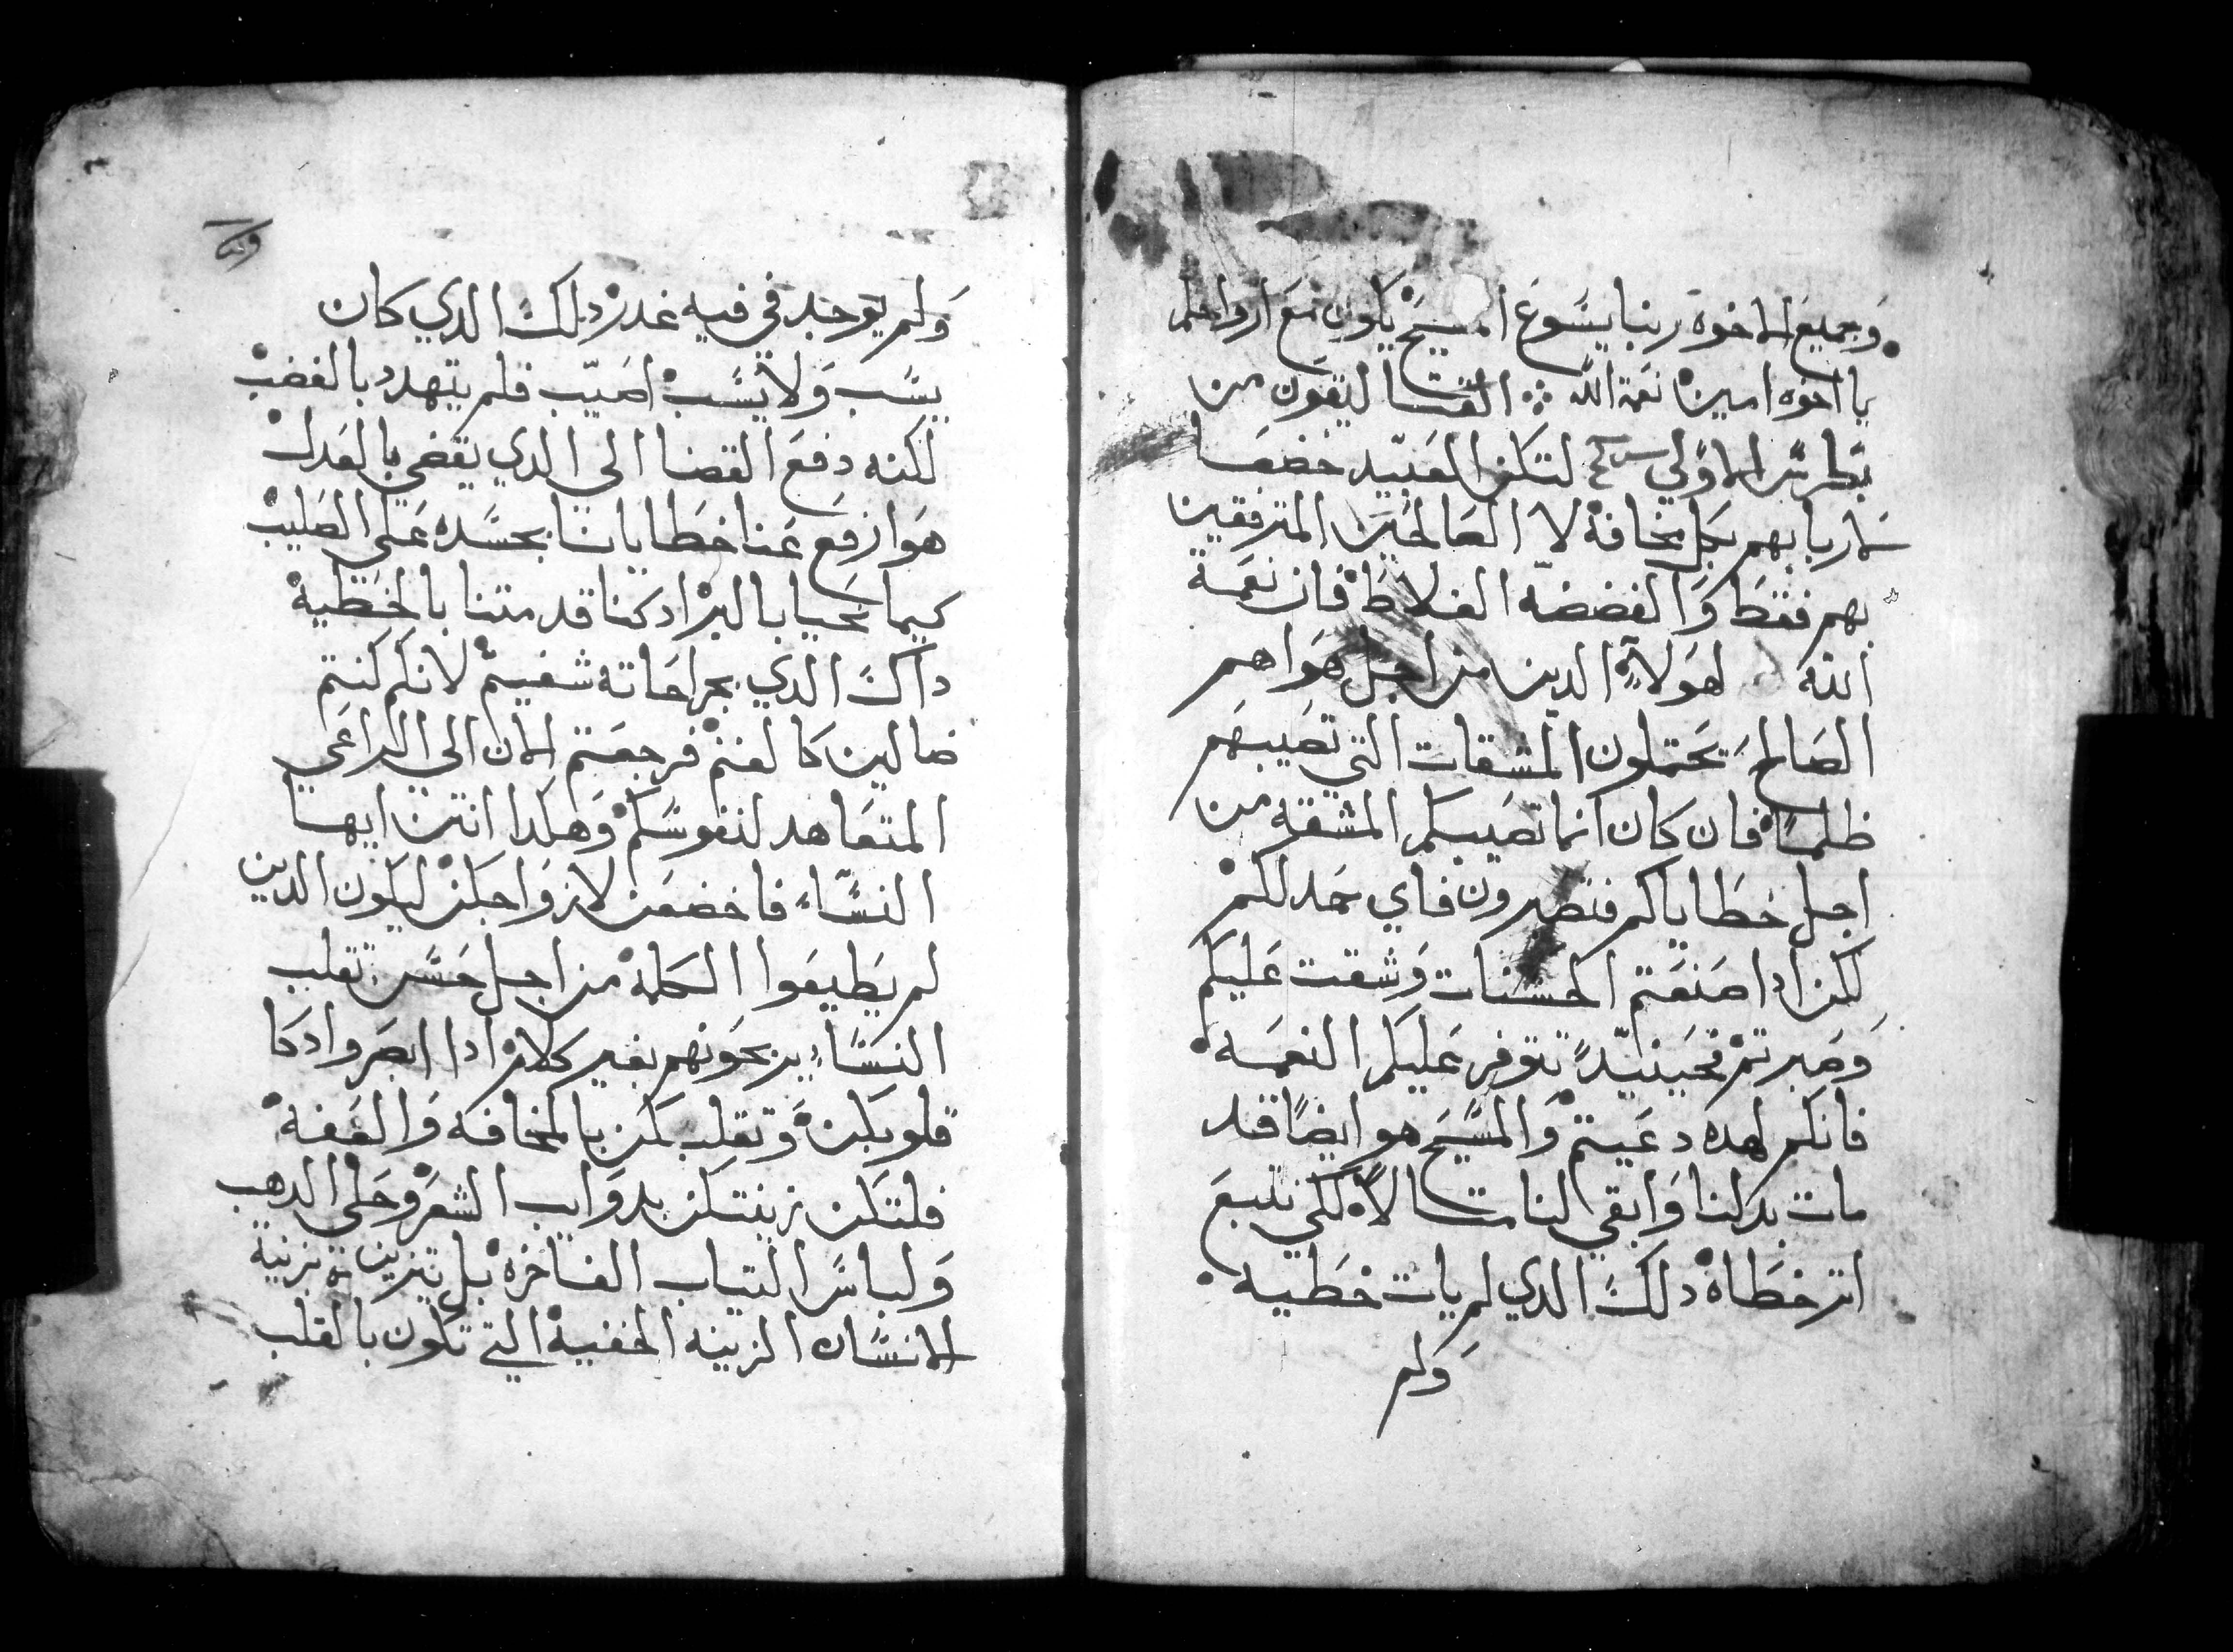 وَجميع الاخوه ربنا يسَوع المسيح يكون مع ارواحكم
يا اخوه امين نعمة الله ⁘ القتاليقون من
بطرس الاولي لتكن العبيد خضعا
لاربابهم بكل مخافة لا الصالحين المترفقين
بهم فقط وَالفضضه الغلاظ فان نعمة
الله لهولاء الدين من اجل هَواهم
الصَالح يَحتملون المشقات التي تصيبهم
ظلماً فان كان انما تصيبكم المشقة من
اجل خطاياكم فتصبرون فاي حمد لكم
لكن ادا صنعتم الحسنات وَشقت عَليكم
وَصبرتم فحينيدٍ تتوفر عَليكم النعمَة
فانكم لهده دعَيتم وَالمسَيح هو ايضاً قد
مات بدلنا وَابقي لنا متالاً لكي نتبعَ
اتر خطاه دلكَ الدي لم يات خطية
وَلم
وَلم يوجد في فيه غدر دلكَ الدي كان
يسَب وَلا يسَب اصَيب فلم يتهدد بالغضب
لكنه دفعَ القضا الي الدي يقضي بالعدل
هوَ ارفع عَنا خطايانا بجسَده عَلي الصَليب
كيما نحيا بالبر ادكنا قد متنا بالخطية
داكَ الدي بجراحَاته شفيتم لانكم كنتم
ضالين كالغنم فرجعَتم الان الي الراعَي
المتعَاهد لنفوسَكم وَهكدا انتن ايها
النسَاء فاخضعَن لازوَاجكن ليكون الدين
لم يَطيعَوا الكلمة من اجل حَسَن تقلب
النسَاء يربحَونهم بغير كلام ادا ابصَروا دكا
قلوبكن وَتقلبكن بالمخافه وَالعَفة
فلتكن زينتكن بدوَايب الشعَر وَحَلي الدهب
وَلباسَ التياب الفاخره بل تتزين بزينة
الانسَان الزينه الخفية التي تكون بالقلب